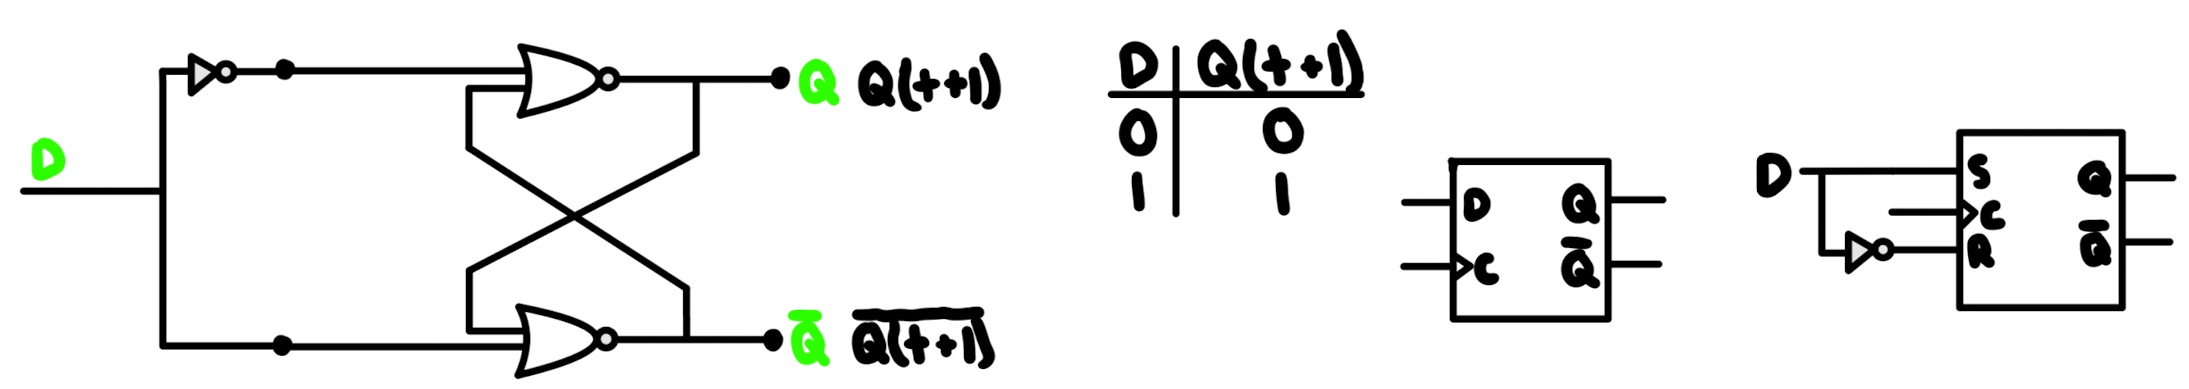 D
Q Q(t+1)
Q̅ Q̅(̅t̅+̅1̅)̅
D Q(t+1)
0 0
1 1
D Q
C Q̅
D
S Q
C
R Q̅